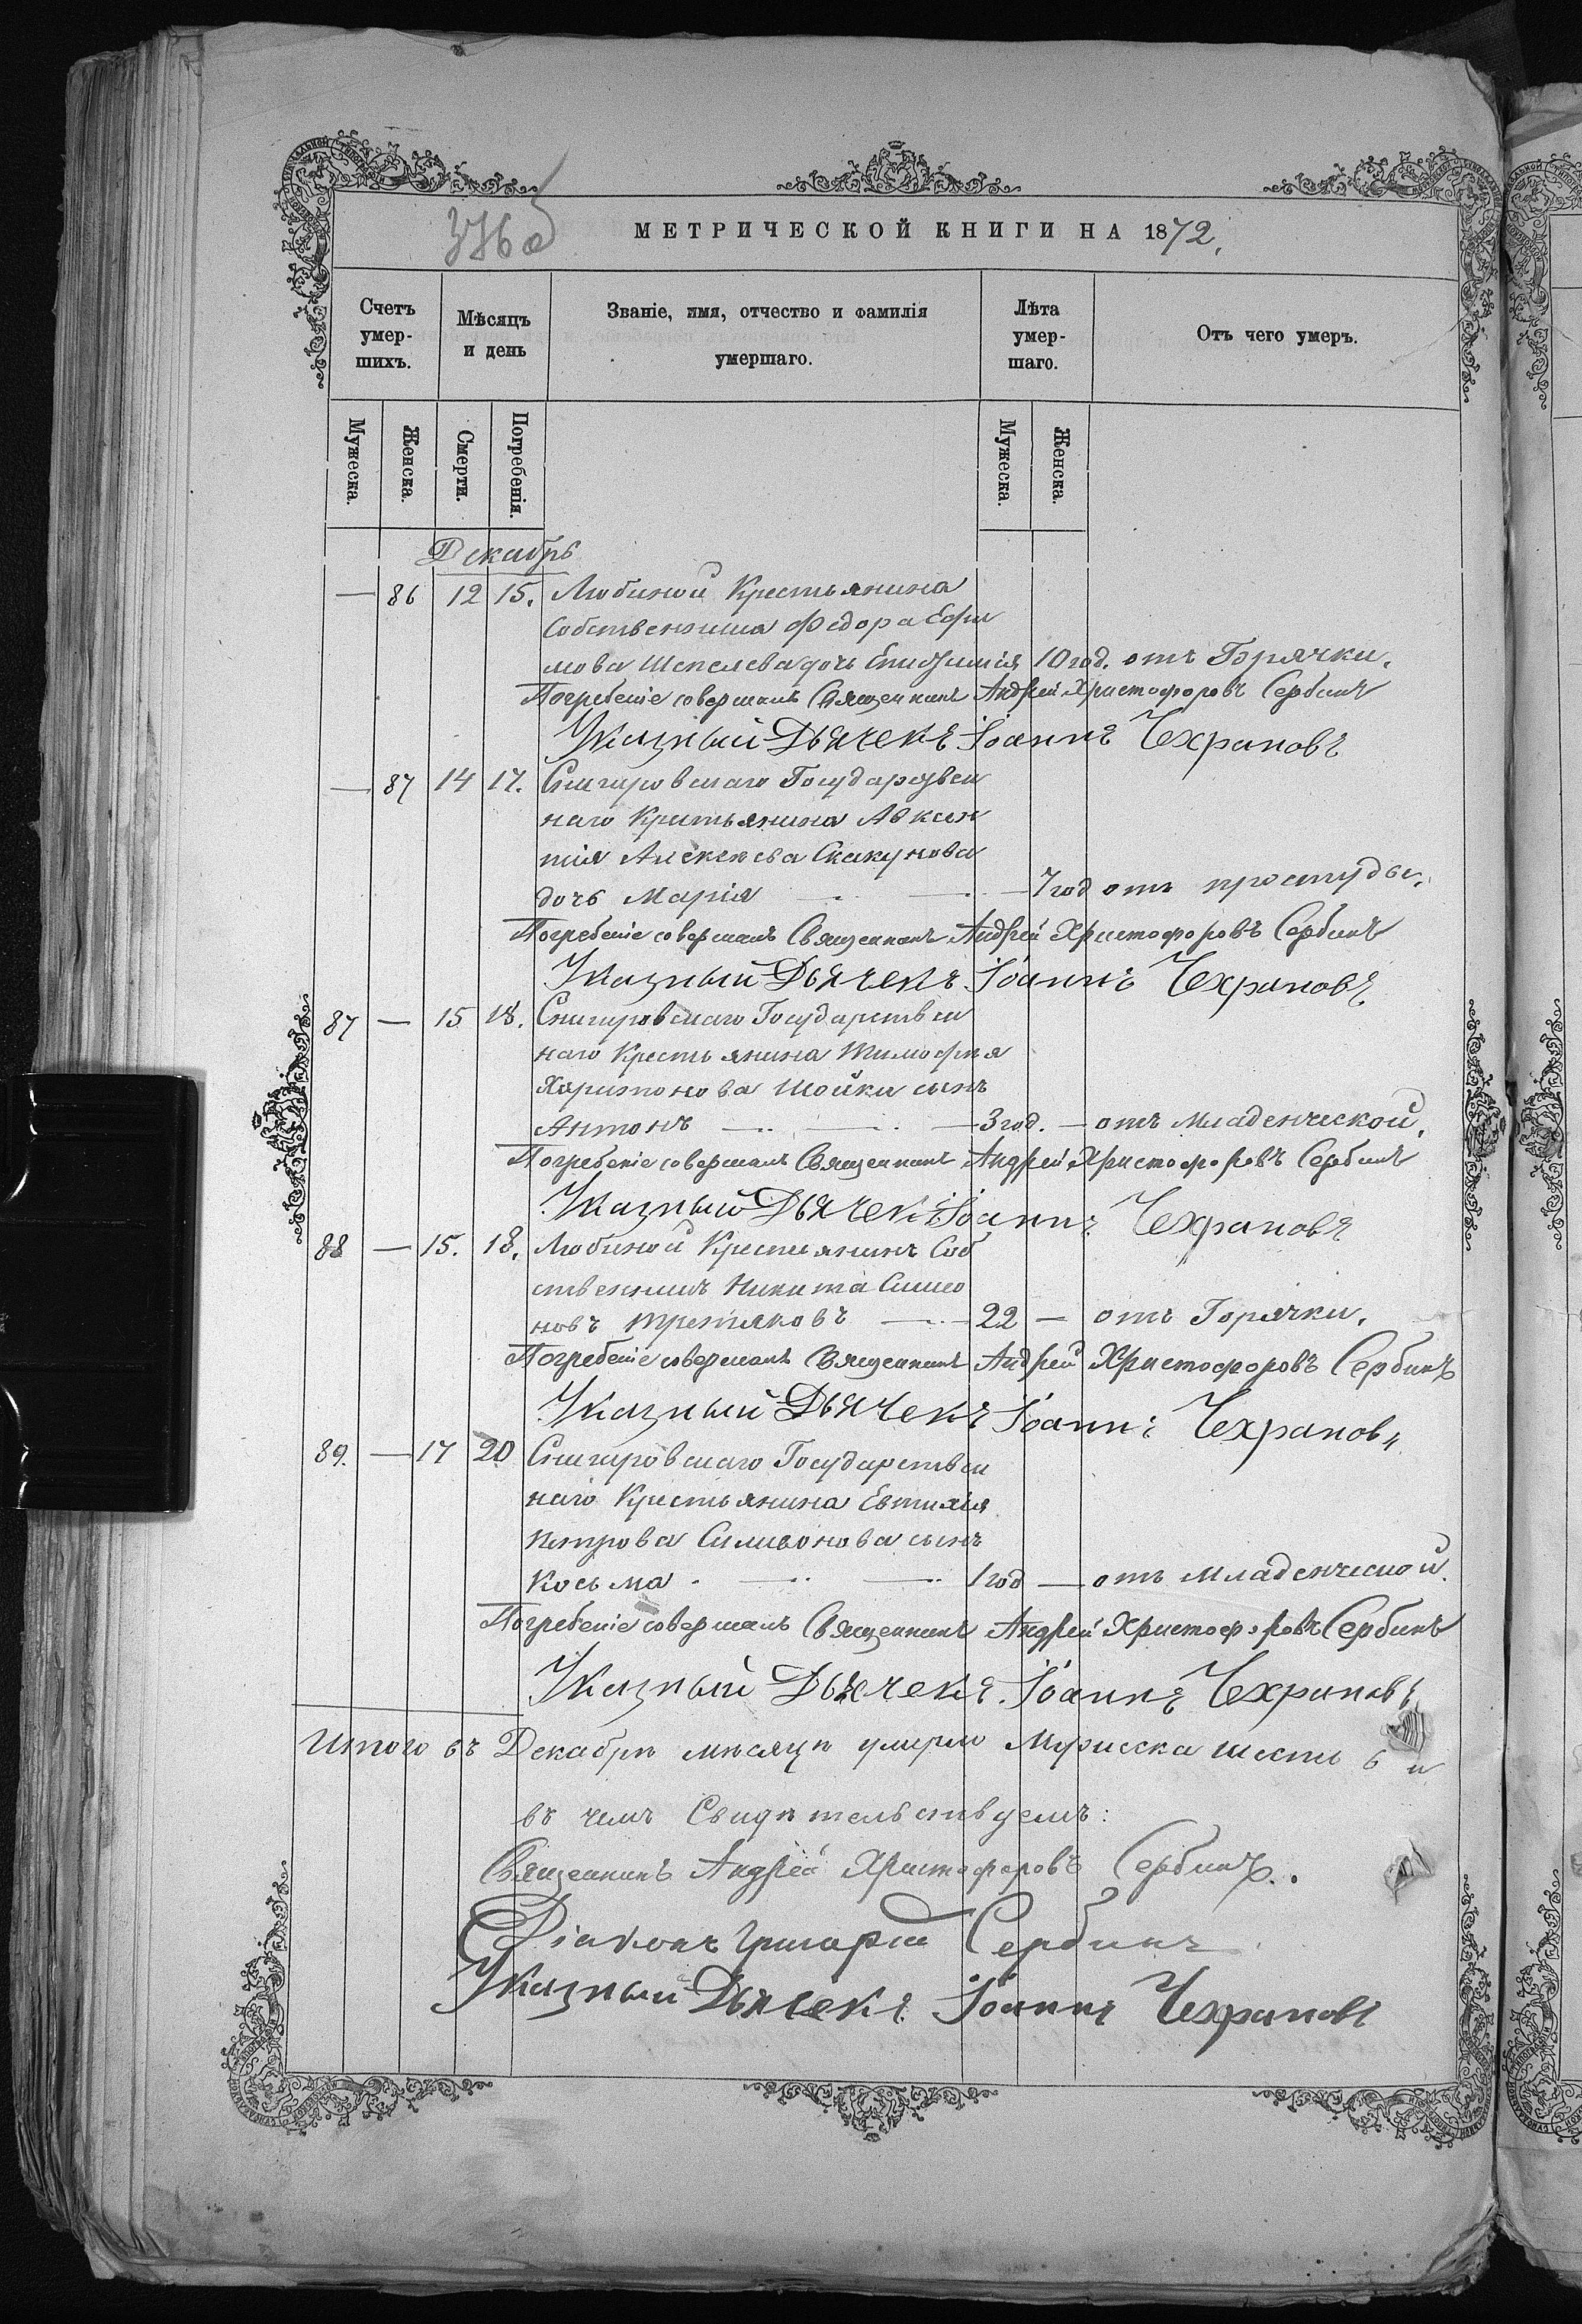 МЕТРИЧЕСКОЙ КНИГИ НА 1872.
Счетъ умер-шихъ.
Мѣсяцъ и день
Званіе, имя, отчество и фамилія умершаго.
Лѣта умер-шаго.
Отъ чего умеръ.
Мужеска. Женска. Смерти. Погребенія. Мужеска. Женска.
Декабрь
— 86 12 15. Любиной Крестьянина
Собственника Федора Ефи
мова Шепелева дочь 10 год. отъ Горячки.
Погребеніе совершалъ Священникъ Андрей Христофоровъ Сербинъ
Указный Дьячекъ Іоаннъ Чехрановъ
— 87 14 17. Снигировскаго Государствен
наго Крестьянина Авксен
тія Алексѣева Скакунова
дочь Марія — 7 год отъ простуды.
Погребеніе совершалъ Священникъ Андрей Христофоровъ Сербинъ
Указный Дьячекъ Іоаннъ Чехрановъ
87 — 15 18. Снигировскаго Государствен
наго Крестьянина Тимофея
Харитонова Шойки сынъ
Антонъ — 3 год. — отъ младенческой.
Погребеніе совершалъ Священникъ Андрей Христофоровъ Сербинъ
Указный Дьячекъ Іоаннъ Чехрановъ
88 — 15. 18. Любиной Крестьянинъ Соб
ственникъ Никита Симо
новъ Третяковъ — 22 — отъ Горячки.
Погребеніе совершалъ Священникъ Андрей Христофоровъ Сербинъ
Указный Дьячекъ Іоаннъ Чехрановъ
89. — 17 20 Снигировскаго Государствен
наго Крестьянина Евтихія
Петрова Симвонова сынъ
Косьма — 1 год — отъ Младенческой.
Погребеніе совершалъ Священникъ Андрей Христофоровъ Сербинъ
Указный Дьячекъ Іоаннъ Чехрановъ
Итого въ Декабрѣ мѣсяцѣ умерло Мужеска шесть 6 и
въ чемъ Свидѣтельствуемъ:
Священникъ Андрей Христофоровъ Сербинъ.
Діаконъ Григорій Сербинъ
Указный Дьячекъ Іоаннъ Чехрановъ